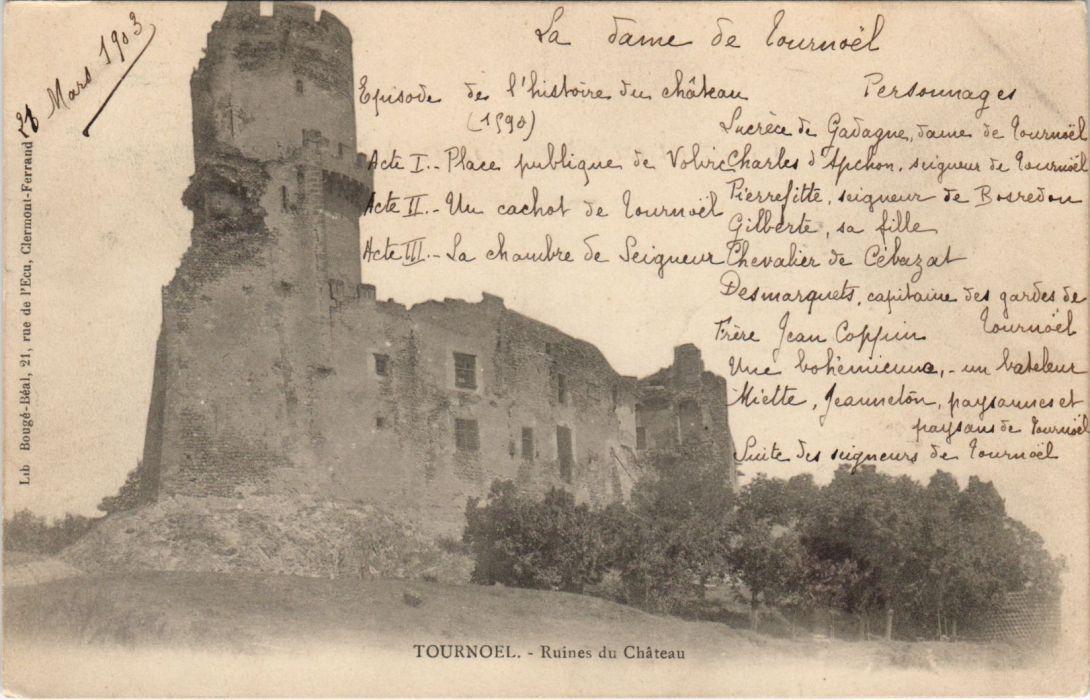 28 Mars 1903
La dame de Tournoël
Episode de l'histoire du château
(1590)
Acte I.- Place publique de Volvic
Acte II.- Un cachot de Tournoël
Acte III.- La chambre de Seigneur
Personnages
Lucrèce de Gadagne, dame de Tournoël
Charles d'Apchon, seigneur de Tournoël
Pierrefitte, seigneur de Bosredon
Gilberte, sa fille
Chevalier de Cébazat
Desmarquets, capitaine des gardes de
Tournoël
Frère Jean Coppin
Une bohémienne, - un bateleur
Miette, Jeanneton, paysannes et
paysans de Tournoël
Suite des seigneurs de Tournoël
Lib Bougé-Béal, 21, rue de l'Ecu, Clermont-Ferrand
TOURNOEL. - Ruines du Château